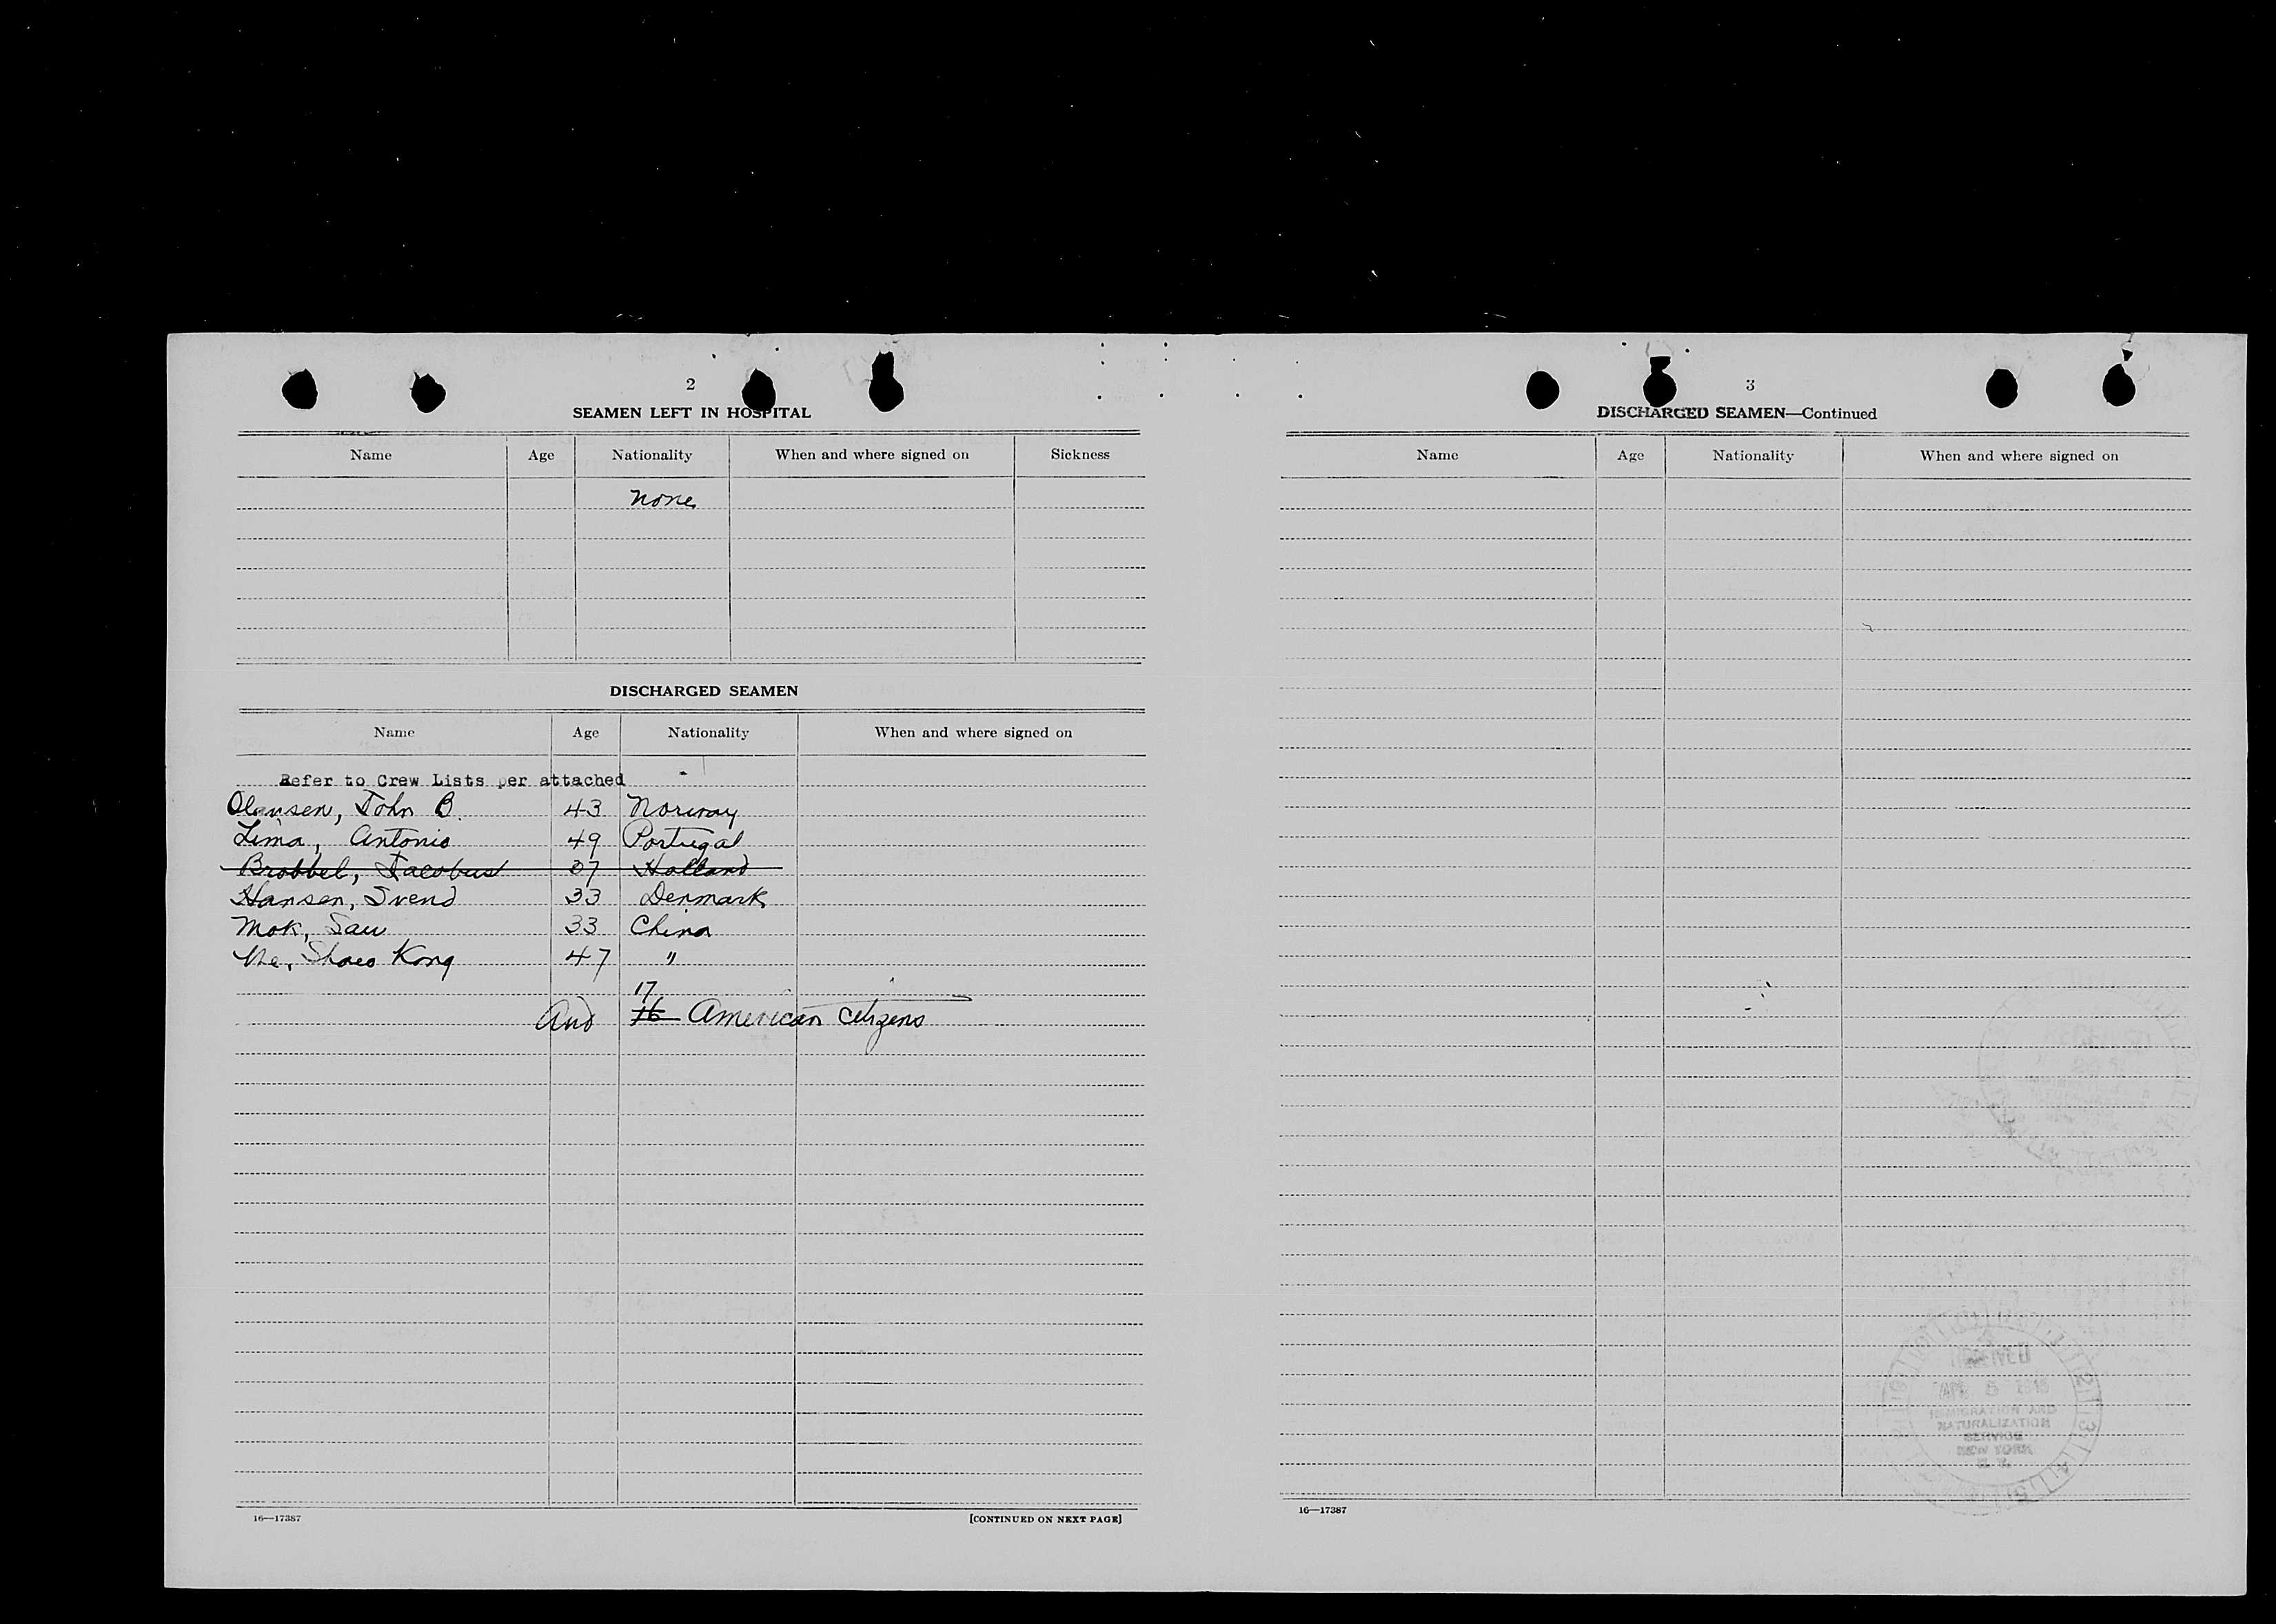 2
SEAMEN LEFT IN HOSPITAL
Name Age Nationality When and where signed on Sickness
None
DISCHARGED SEAMEN
Name Age Nationality When and where signed on
Refer to Crew Lists per attached
John B. 43 Norway
Lima, Antonio 49 Portugal
Brobbel, Jacobus 37 Holland
Hansen, Svend 33 Denmark
Mok, Sau 33 China
Kong 47 "
17
And 16 American citizens
16—17387 [CONTINUED ON NEXT PAGE]
3
DISCHARGED SEAMEN—Continued
Name Age Nationality When and where signed on
RECEIVED
APR 5
IMMIGRATION AND
NATURALIZATION
SERVICE
NEW YORK
N. Y.
16—17387